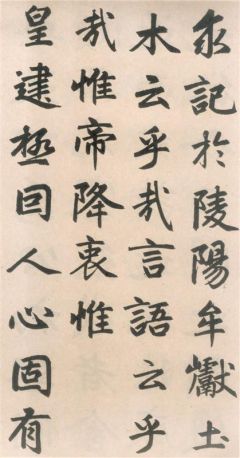 求記於陵陽牟巘土
木云乎哉言語云乎
哉惟帝降衷惟
皇建極回人心固有